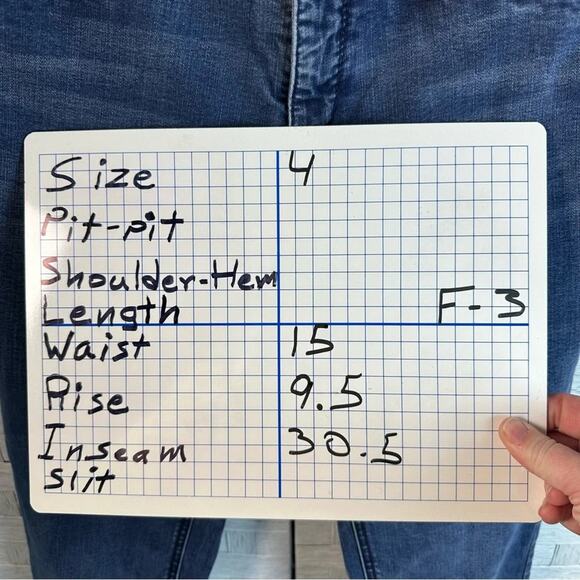 Size 4
Pit-pit
Shoulder-Hem
Length F-3
Waist 15
Rise 9.5
Inseam 30.5
Slit